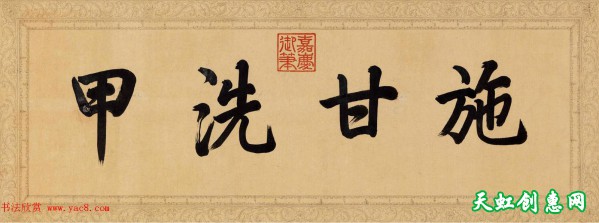 嘉慶
御筆
施甘洗甲
书法欣赏
www.yac8.com
天虹创惠网